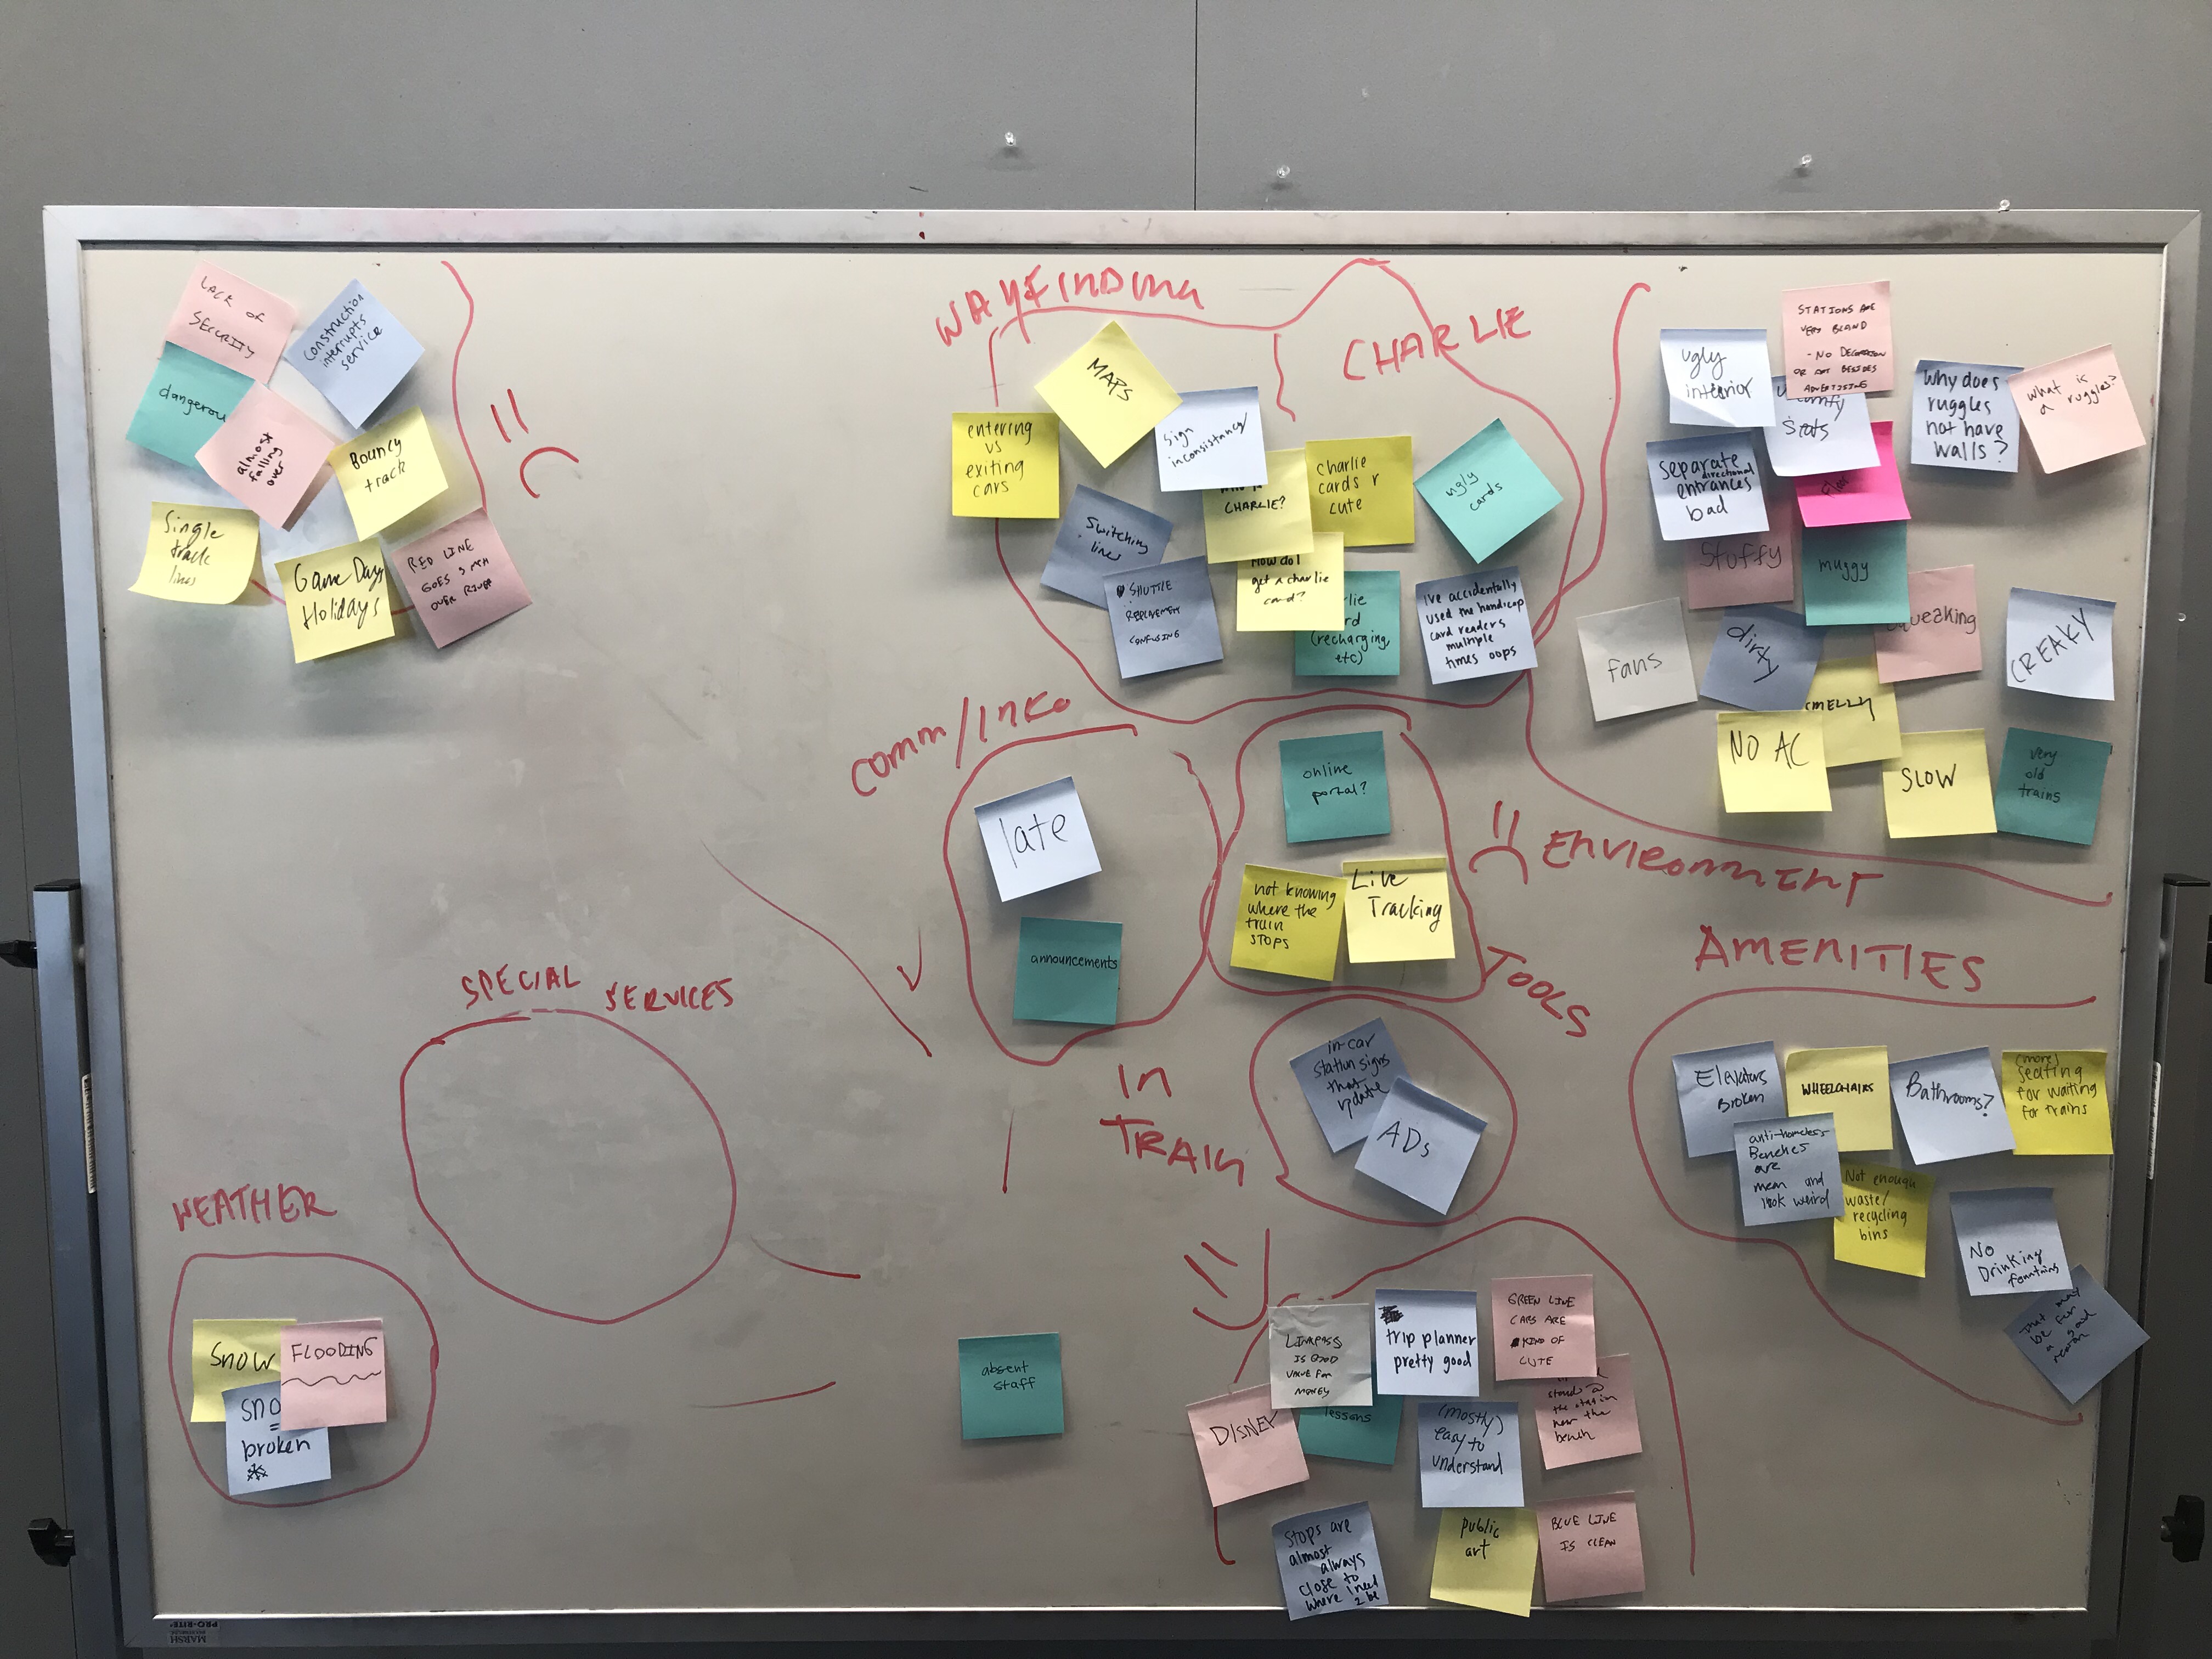 LACK OF
SECURITY
construction
interrupts
service
dangerous
almost
falling
over
Bouncy
track
Single
track
lines
Game Days
Holidays
RED LINE
GOES 5 MPH
OVER RIVER
WAYFINDING
CHARLIE
MAPS
entering
vs
exiting
cars
Sign
inconsistancy
CHARLIE?
charlie
cards r
cute
ugly
cards
Switching
lines
SHUTTLE
REPLACEMENT
CONFUSING
How do I
get a charlie
card?
(recharging,
etc)
I've accidentally
used the handicap
card readers
multiple
times oops
ugly
interior
STATIONS ARE
VERY BLAND
- NO DECORATION
OR ART BESIDES
ADVERTISING
Seats
Why does
ruggles
not have
walls?
what is
a ruggles?
separate
directional
entrances
bad
Stuffy
muggy
fans
dirty
squeaking
CREAKY
SMELLY
NO AC
SLOW
very
old
trains
ENVIRONMENT
comm/info
late
announcements
online
portal?
not knowing
where the
train
STOPS
Live
Tracking
TOOLS
AMENITIES
Elevators
Broken
WHEELCHAIRS
Bathrooms?
(more)
seating
for waiting
for trains
anti-homeless
Benches
are
mean and
look weird
Not enough
waste/
recycling
bins
No
Drinking
fountains
but may
be for
a good
reason
In
TRAIN
in-car
station signs
that
update
ADs
SPECIAL SERVICES
WEATHER
Snow
FLOODING
sno
=
broken
absent
staff
LINKPASS
IS GOOD
VALUE FOR
MONEY
trip planner
pretty good
GREEN LINE
CARS ARE
KIND OF
CUTE
DISNEY
lessons
(mostly)
easy to
understand
stand @
the station
near the
bench
Stops are
almost
always
close to
where I need
2 be
public
art
BLUE LINE
IS CLEAN
MARSH
PRO-RITE